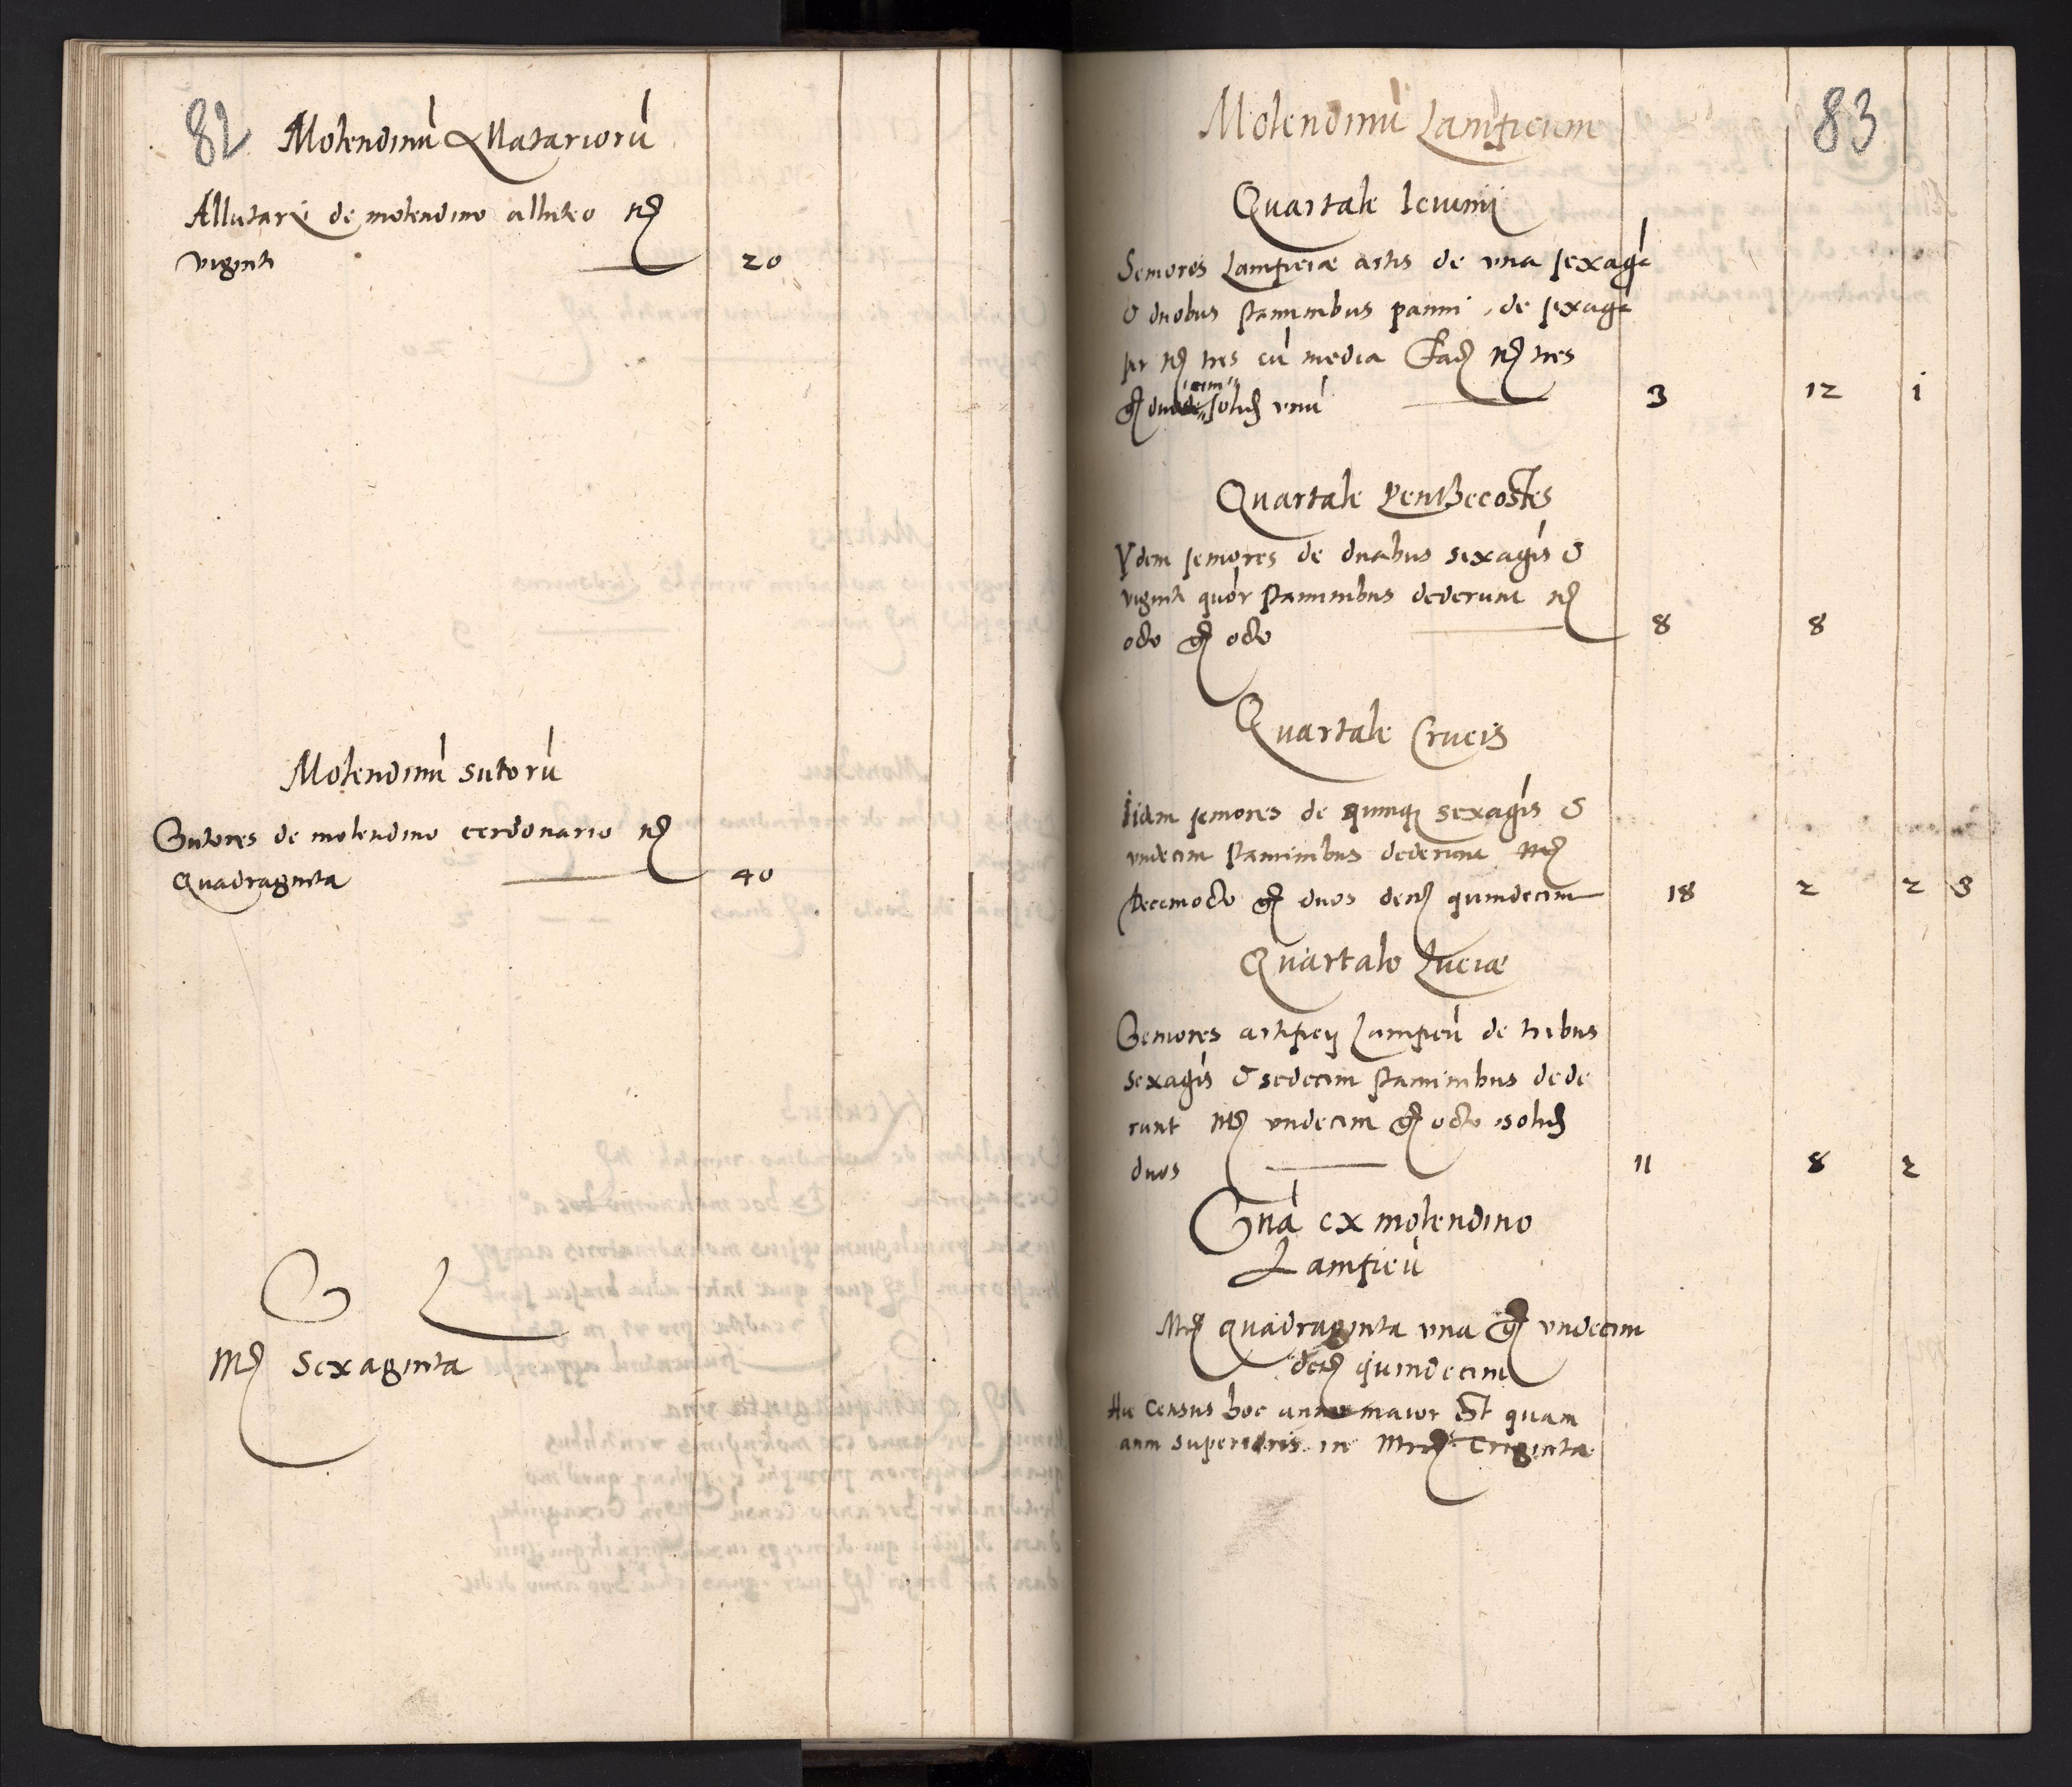 82
Molendinú Allutariorú
Allutarij de molendino alluteo
viginti 20
Molendinú sutorú
Sutores de molendino cerdonario
Quadraginta 40
S L
Sexaginta
83
Molendinú Lanificum
Quartale Ieiunij
Seniores Lanificiæ artis de vna sexagᵉ
& duobus staminibus panni, de sexagᵉ
per tres cú media tres
solid vnú 3 12 i
Quartale Penthecostes
Ydem seniores de duabus sexagís &
viginti quór staminibus dederunt
octo gr octo 8 8
Quartale Crucis
Iidem seniores de quinq sexagís &
vndecim staminibus dederunt
Decemocto gr duos quindecim 18 2 2 3
Quartale Luciæ
Seniores artificij Lanificú de tribus
sexagís & sedecim staminibus dede
runt vndecim gr octo solid
duos 11 8 2
Sná ex molendino
Lanificú
quadraginta vna gr vndecim
quindecim
Hic Census hoc anno maior est quam
anni superioris in Triginta